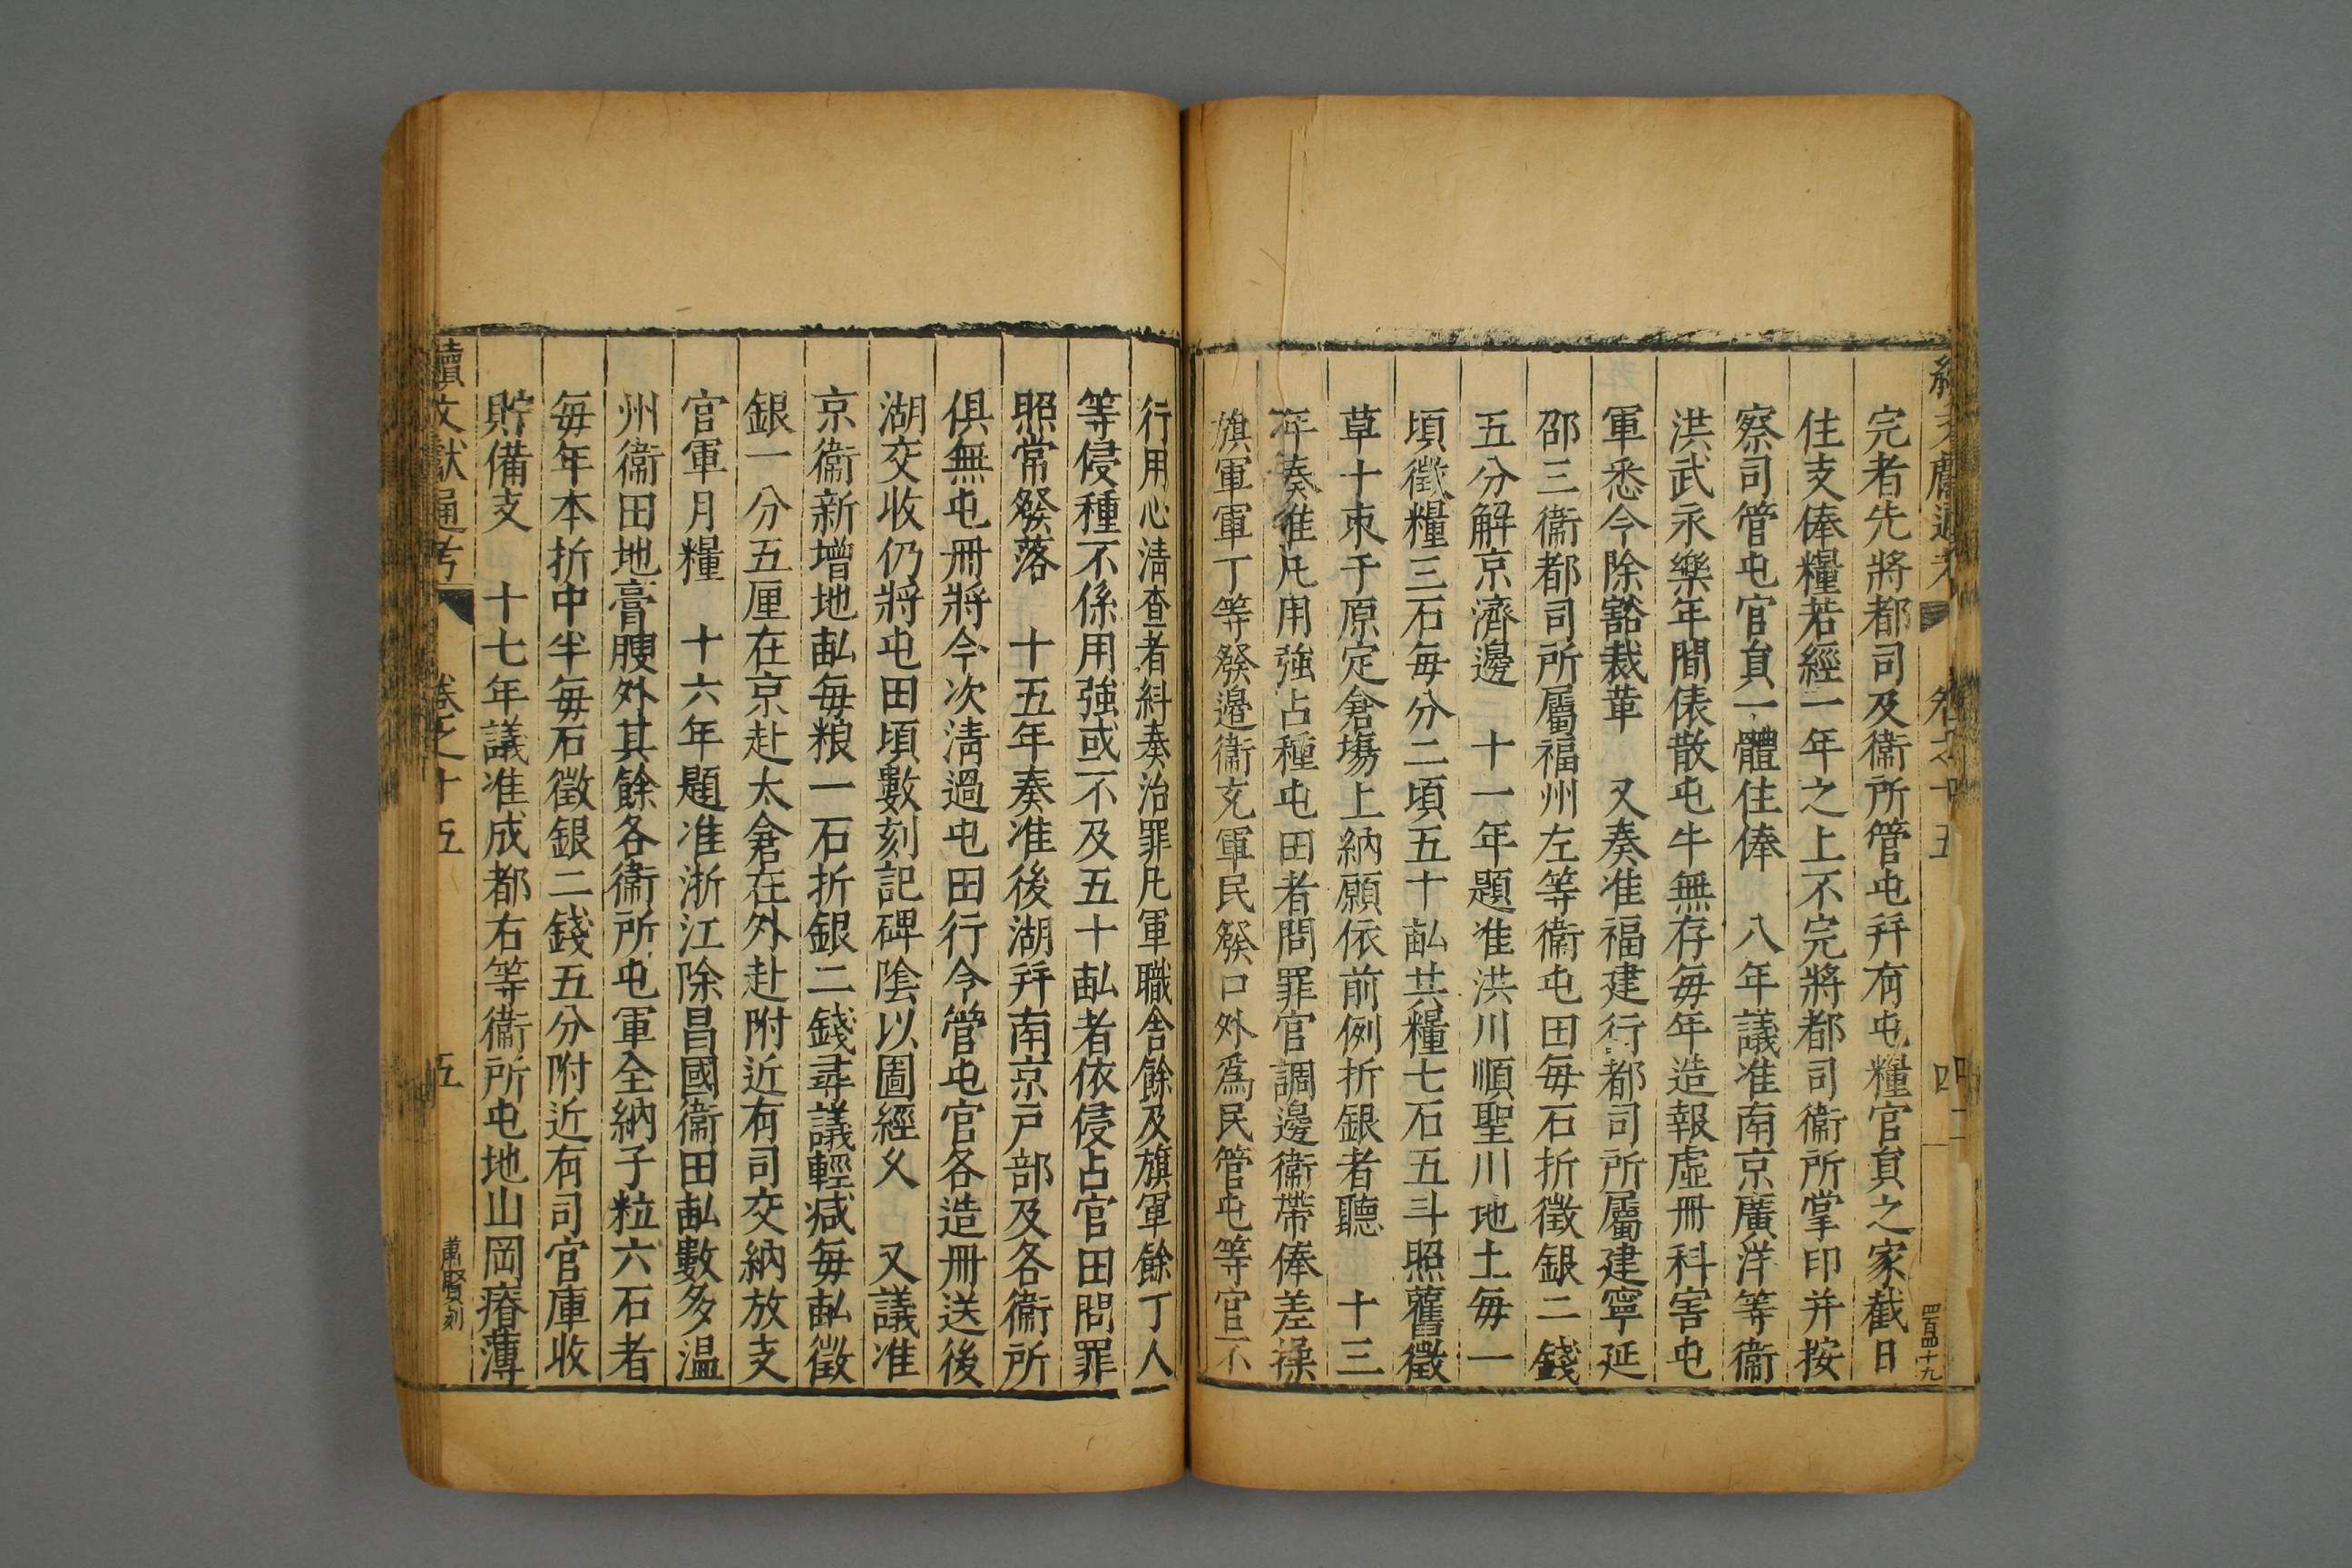 續文獻通考 卷之十五 四 四百四十九
完者先將都司及衞所管屯幷有屯糧官員之家截日
住支俸糧若經一年之上不完將都司衞所掌印并按
察司管屯官員一體住俸 八年議准南京廣洋等衞
洪武永樂年間俵散屯牛無存每年造報虛冊科害屯
軍悉令除豁裁革 又奏准福建行都司所屬建寧延
邵三衞都司所屬福州左等衞屯田每石折徵銀二錢
五分解京濟邊 十一年題准洪川順聖川地土每一
頃徵糧三石每分二頃五十畝共糧七石五斗照舊徵
草十束于原定倉塲上納願依前例折銀者聽 十三
年奏准凡用強占種屯田者問罪官調邊衞帶俸差操
旗軍軍丁等發邊衞充軍民發口外爲民管屯等官不
行用心清查者糾奏治罪凡軍職舍餘及旗軍餘丁人
等侵種不係用強或不及五十畝者依侵占官田問罪
照常發落 十五年奏准後湖幷南京戸部及各衞所
俱無屯冊將今次清過屯田行令管屯官各造冊送後
湖交收仍將屯田頃數刻記碑陰以圖經久 又議准
京衞新增地畝每粮一石折銀二錢尋議輕减每畝徵
銀一分五厘在京赴太倉在外赴附近有司交納放支
官軍月糧 十六年題准浙江除昌國衞田畝數多溫
州衞田地膏腴外其餘各衞所屯軍全納子粒六石者
每年本折中半每石徵銀二錢五分附近有司官庫收
貯備支 十七年議准成都右等衞所屯地山岡瘠薄
續文獻通考 卷之十五 五 蕭賢刻